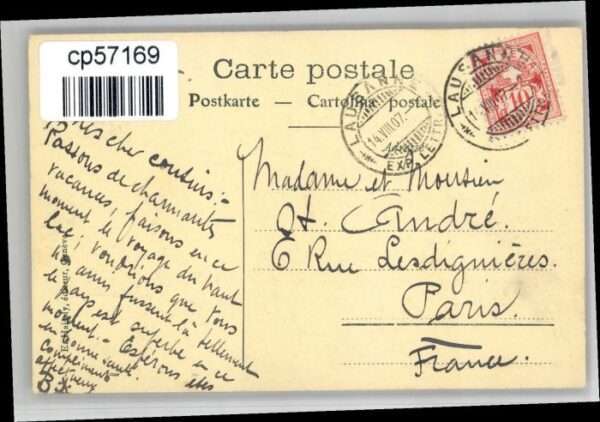 cp57169
Carte postale
Postkarte — Cartolina postale
LAUSANNE
14.VIII.07.
EXP. LETTR.
LAUSANNE
10
Mes cher cousins:-
Passons de charmantes
vacances, faisons en ce
moment le voyage du haut
lac; voudrions que vous
fussiez là tellement
le pays est superbe en ce
moment. - Espérons êtes
en bonne santé.
compliments
affectueux
Madame et Monsieur
St. André.
6 Rue Lesdiguières
Paris.
France.
éditeur, Genève